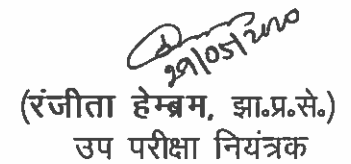 29/05/2020
(रंजीता हेम्ब्रम, झा०प्र०से०)
उप परीक्षा नियंत्रक